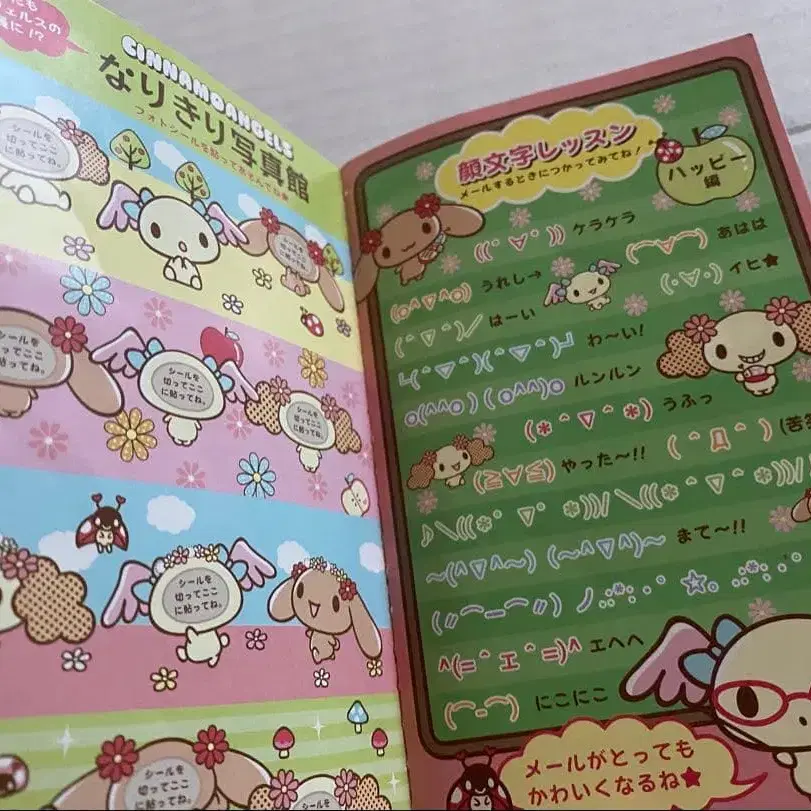 にも
ェルスの
に!?
CINNAMOANGELS
なりきり写真館
フォトシールを貼ってあそんでね❀
シールを
切ってここ
に貼ってね。
シールを
切ってここ
に貼ってね。
シールを
ってここ
貼ってね。
シールを
切ってここ
に貼ってね。
シールを
切ってここ
に貼ってね。
シールを
切ってここ
に貼ってね。
シールを
切ってここ
に貼ってね。
シールを
顔文字レッスン
メールするときにつかってみてね!
ハッピー
編
(((・∀・))) ケラケラ
(⌒▽⌒) あはは
(o^∇^o) うれし→
(・∀・) イヒ★
(^▽^)/ はーい
『(^▽^)(^▽^)』 わ~い!
o(^^o)(o^^)o ルンルン
(*^▽^*) うふっ
(≧▽≦) やった~!!
(^Д^) (苦
♪\(((*^▽^*)))/\(((*^▽^*)))/
~(^▽^~) (~^▽^)~ まて~!!
(〃⌒ー⌒〃)ノ.:*:・゜☆。.:*:・
^(=^エ^=)^ エヘヘ
(⌒-⌒) にこにこ
メールがとっても
かわいくなるね★